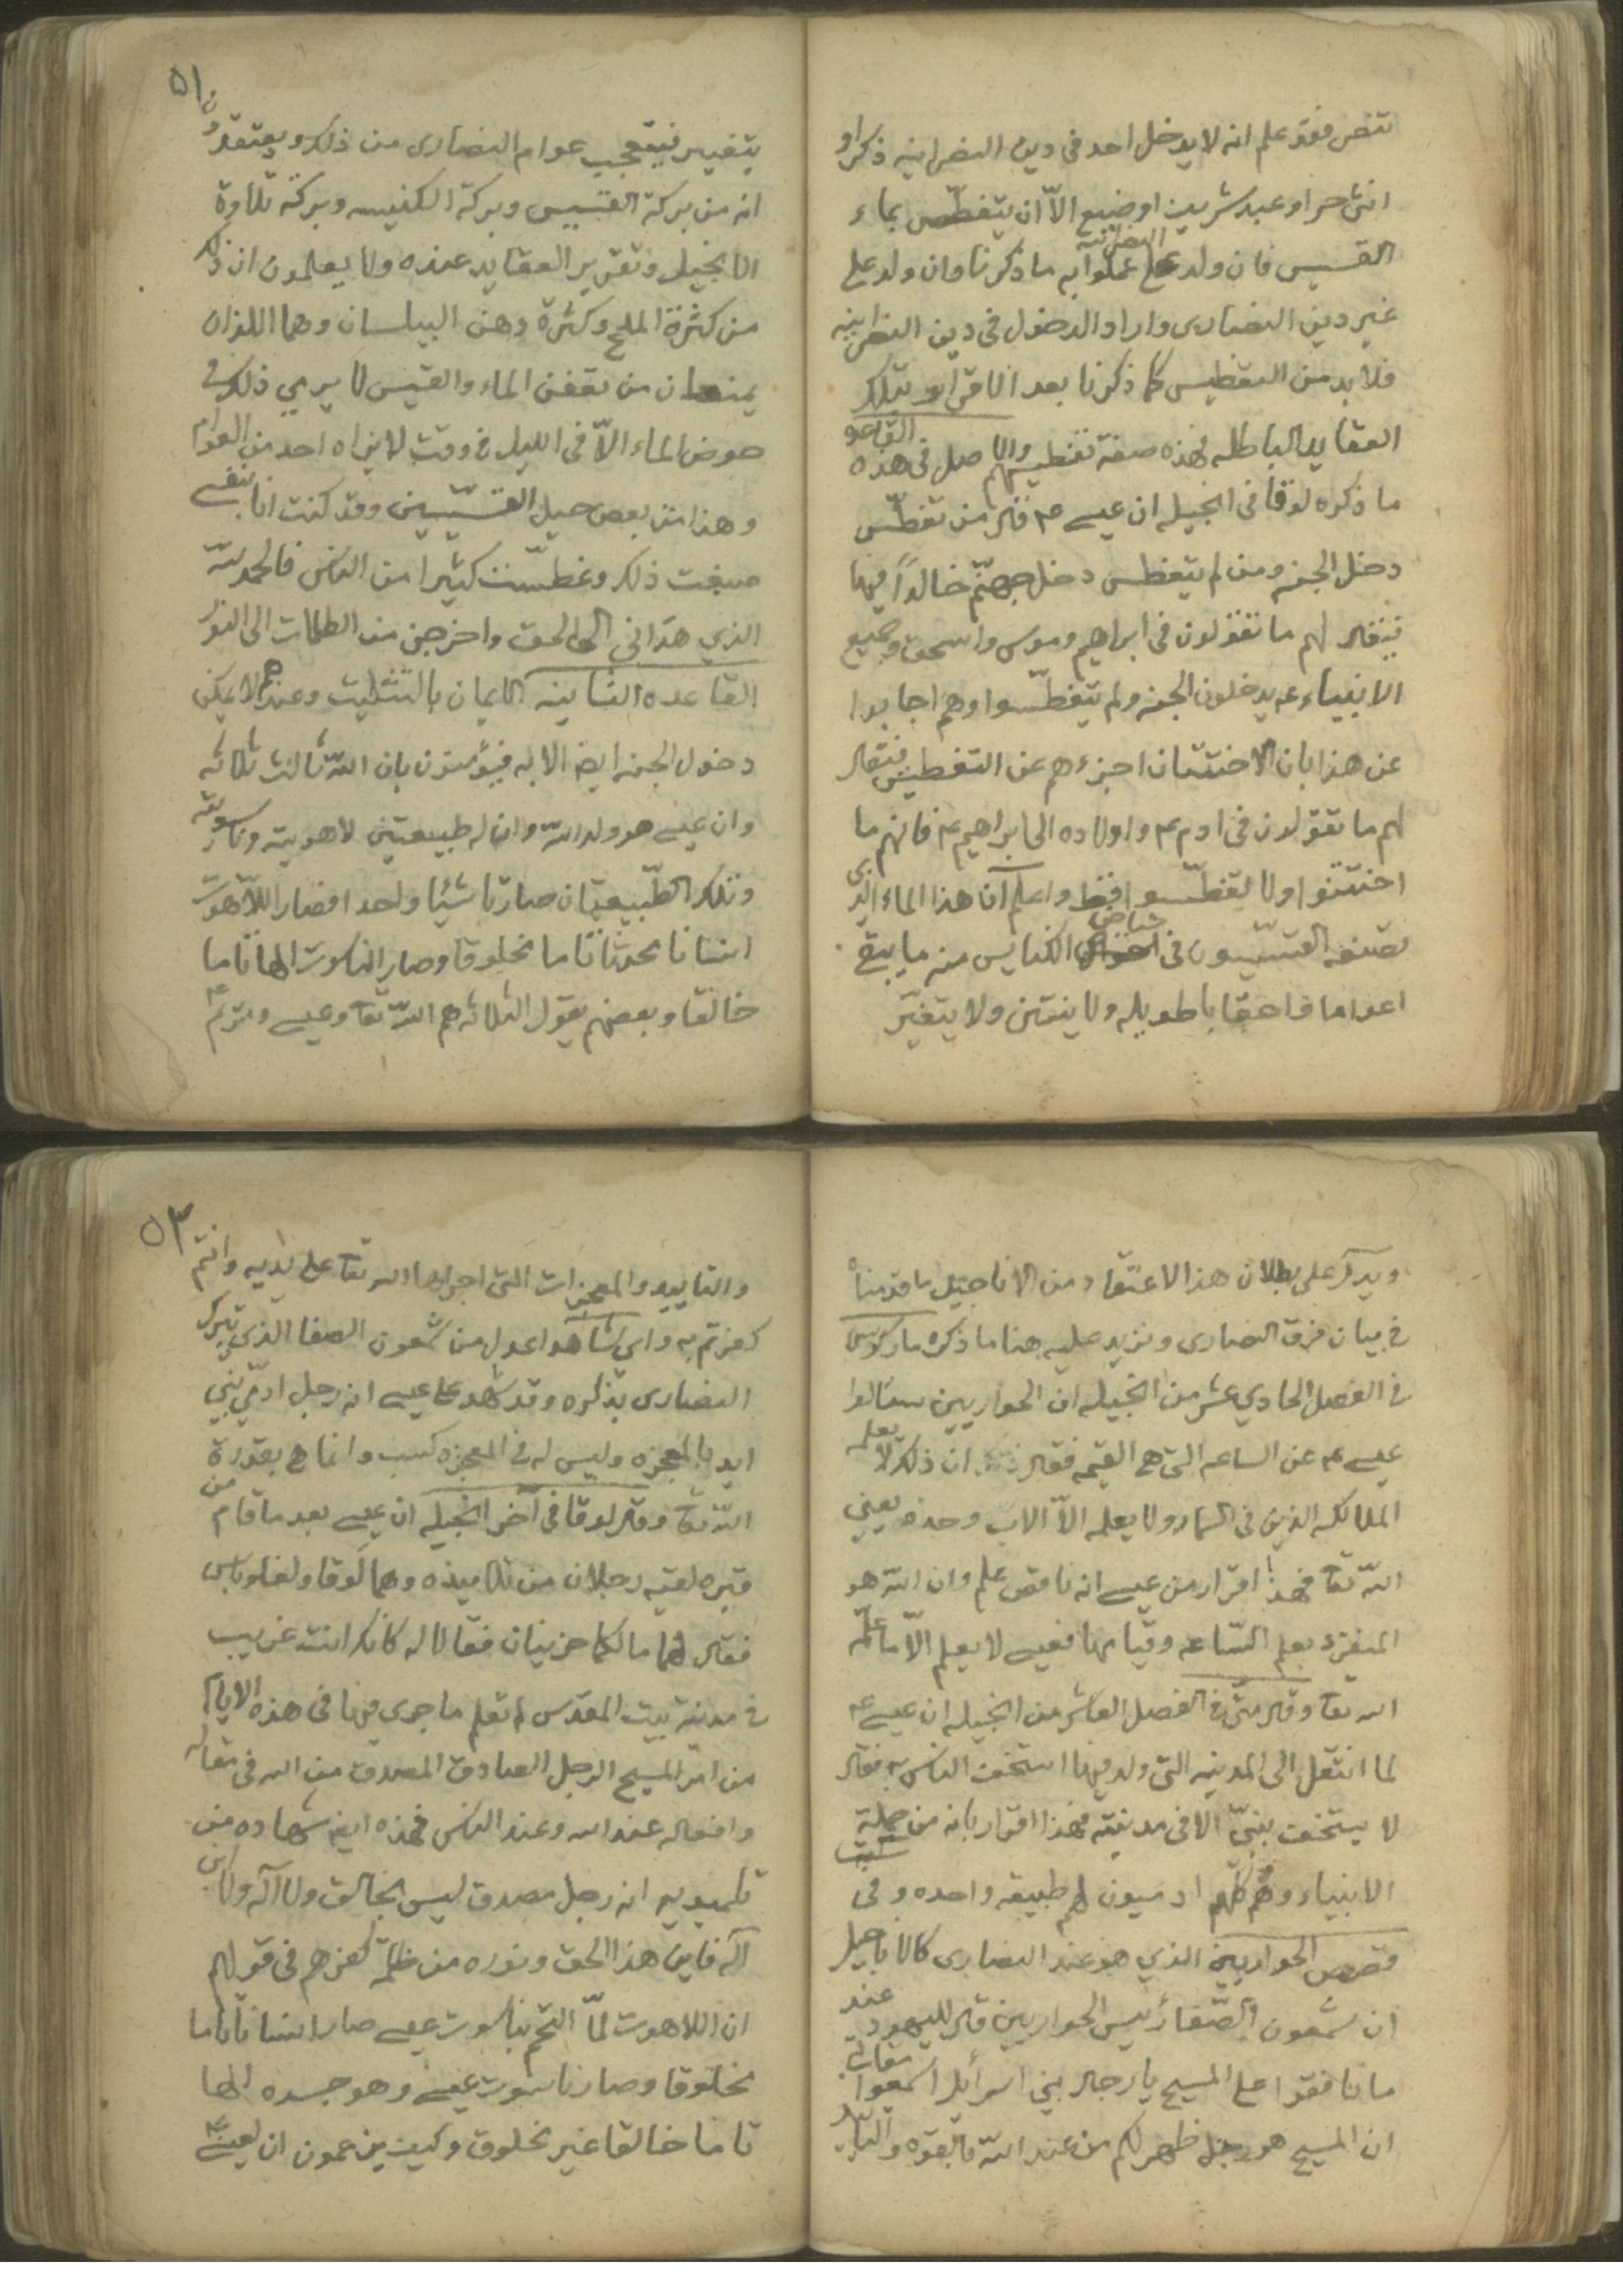 تنصر فقد علم انه لا يدخل احد فى دين النصرانيه ذكرا او
انثى حرا او عبد شريف او ضيع الاّ ان يتغطّس بماء
القسيس فان ولد على النصرانيه عملوا به ما ذكرنا وان ولد على
غير دين النصارى واراد الدخول فى دين النصرانيه
فلا بد من التغطيس كما ذكرنا بعد الاقرار بتلك
العقايد الباطله فهذه صفة تغطيسهم والاصل فى هذه القاعده
ما ذكره لوقا فى انجيله ان عيسى عم قال من تغطّس
دخل الجنه ومن لم يتغطس دخل جهنّم خالداً فيها
فيقال لهم ما تقولون فى ابراهيم وموسى واسحق وجميع
الانبياء عم يدخلون الجنه ولم يتغطّسوا وهم اجابوا
عن هذا بان الاختتان اجزءهم عن التغطيس فيقال
لهم ما تقولون فى ادم عم واولاده الى ابراهيم عم فانهم ما
اختتنوا ولا تغطّسوا فقط واعلم ان هذا الماء الذى
تصنعه القسّيسون فى احواض الكنايس منه ما يبقى
اعواما واحقابا طويله ولا ينتن ولا يتغيّر
٥١
يتغيير فيتعجب عوام النصارى من ذلك ويعتقدون
انه من بركة القسيس وبركة الكنيسه وبركة تلاوة
الانجيل وتقرير العقايد عنده ولا يعلمون ان ذلك
من كثرة الملح وكثرة دهن البيلسان وهما اللذان
يمنعان من تعفن الماء والقيس لا يرمي ذلك فى
حوض الماء الاّ فى الليل فى وقت لا يراه احد من العوام
وهذا من بعض حيل القسّيسين وقد كنت انا بنفسى
صنعت ذلك وغطّست كثيرا من الناس فالحمد للّه
الذي هدانى الى الحق واخرجن من الظلمات الى النور
القاعده الثانيه الايمان بالتثليث وعندهم لا يمكن
دخول الجنه ايضا الا به فيؤمنون بان اللّه ثالث ثلاثه
وان عيسى هو ولد اللّه وان له طبيعتين لاهوتية وناسوتيه
وتلك الطّبيعتان صارتا شيئا واحدا فصار اللاّهوت
انسانا محدثا تاما مخلوقا وصار الناسوت الها تاما
خالقا وبعضهم يقول الثلاثه هم اللّه تعا وعيسى ومريم عم
ويدل على بطلان هذا الاعتقاد من الاناجيل ما قدمناه
فى بيان فرق النصارى ونزيد عليه هنا ما ذكره ماركوس
فى الفصل الحادي عشر من انجيله ان الحواريين سئالوا
عيسى عم عن الساعه التى هى القيمه فقال ان ذلك لا يعلمه
الملائكه الذين فى السماء ولا يعلمه الاّ الاب وحده يعني
اللّه تعا فهذا اقرار من عيسى انه ناقص علم وان اللّه هو
المنفرد بعلم السّاعه وقيامها فعيسى لا يعلم الاّ ما علّمه
الله تعا وقال متّى فى الفصل العاشر من انجيله ان عيسى عم
لما انتقل الى المدينه التى ولد فيها استخف الناس به فقال
لا يستخف بنبيّ الا فى مدينته فهذا اقرار بانه من جملة
الانبياء وهم كلّهم ادميون لهم طبيعه واحده وفى
قصص الحواريين الذي هو عند النصارى كالاناجيل
ان شمعون الصّفا رئيس الحواريين قال لليهود عند
ما نافقوا على المسيح يا رجال بني اسرائيل اسمعوا مقالتى
ان المسيح هو رجل ظهر لكم من عند اللّه بالقوه والتأيد
٥٢
والتاييد والمعجزات التى اجراها الله تعا على يديه وانتم
كفرتم به واى شاهد اعدل من شمعون الصفا الذي تتبرك
النصارى بذكره وقد شهد على عيسى انه رجل ادمّي نبي
ايد بالمعجزه وليس له فى المعجزه كسب وانما هى بقدرة
اللّه تعا وقال لوقا فى آخر انجيله ان عيسى بعد ما قام من
قبره لقيه رجلان من تلاميذه وهما كوقا ولفاوباس
فقال لهما ما لكما حزينان فقالا له كانك انت غريب
فى مدينة بيت المقدس لم تعلم ما جرى فيها فى هذه الايام
من امر المسيح الرجل الصادق المصدق من الله فى مقاله
وافعاله عند الله وعند الناس فهذه ايضا شهاده من
تلميديه انه رجل مصدق ليس بخالق ولا اله ولا ابن
اله فاين هذا الحق ونوره من ظلمة كفرهم فى قولهم
ان اللاهوت لمّا التحم بناسوت عيسى صار انسانا تاما
مخلوقا وصار ناسوت عيسى وهو جسده الها
تاما خالقا غير مخلوق وكيف يزعمون ان لعيسى عم